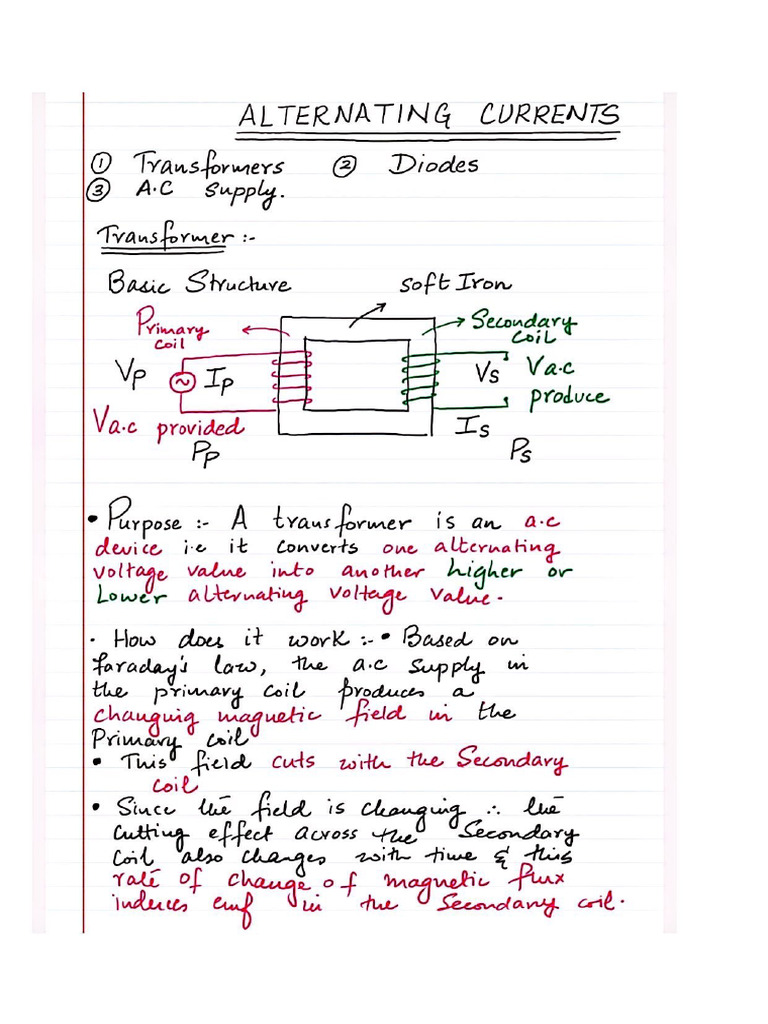 ALTERNATING CURRENTS
① Transformers ② Diodes
③ A.C Supply.
Transformer :-
Basic Structure soft Iron
Primary coil
Secondary coil
Vp Ip Vs Va.c
produce
Va.c provided Is
Pp Ps
• Purpose :- A transformer is an a.c
device i.e it converts one alternating
voltage value into another higher or
Lower alternating voltage value.
• How does it work :- • Based on
faraday's law, the a.c supply in
the primary coil produces a
changing magnetic field in the
Primary coil
• This field cuts with the Secondary
coil
• Since the field is changing ∴ the
cutting effect across the Secondary
coil also changes with time & this
rate of change of magnetic flux
induces emf in the Secondary coil.